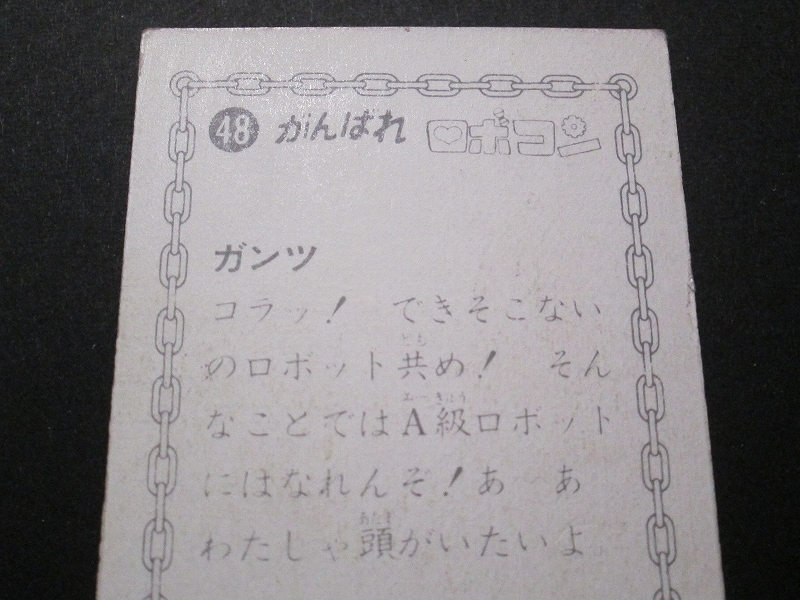 48 がんばれ ロボコン
ガンツ
コラッ! できそこない
のロボット共め! そん
なことではA級ロボット
にはなれんぞ!あゝあ
わたしゃ頭がいたいよ